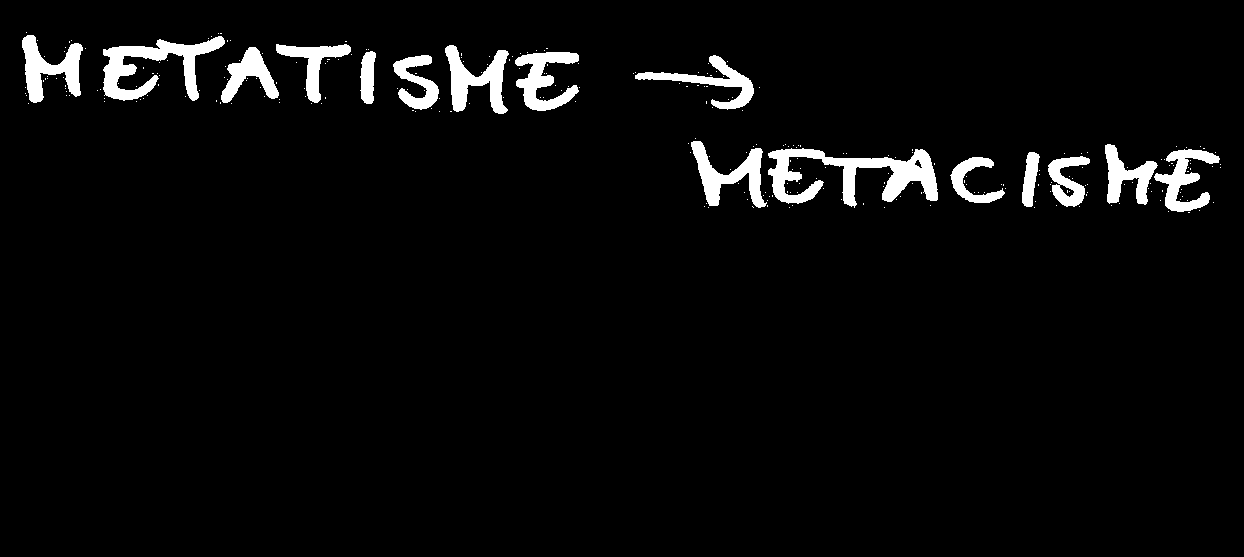 METATISME →
METACISME